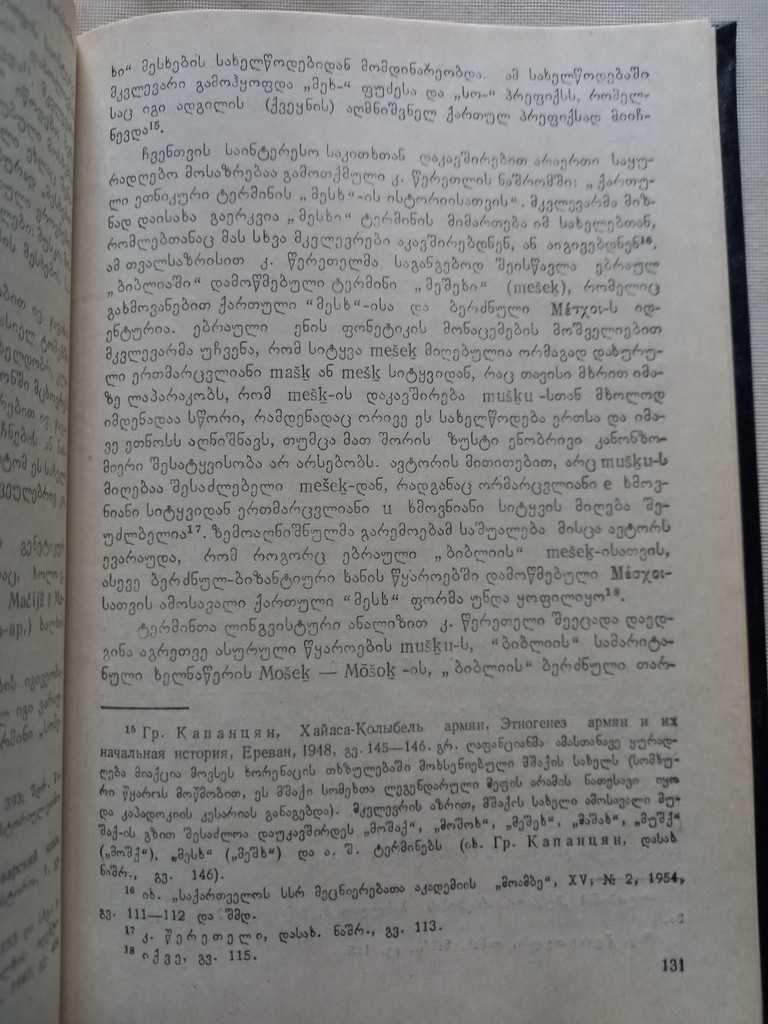 ხი“ მესხების სახელწოდებიდან მომდინარეობდა. ამ სახელწოდებაში
მკვლევარი გამოჰყოფდა „მეხ-“ ფუძესა და „სო-“ პრეფიქსს, რომელ-
საც იგი ადგილის (ქვეყნის) აღმნიშვნელ ქართულ პრეფიქსად მიიჩ-
ნევდა¹⁵.
ჩვენთვის საინტერესო საკითხთან დაკავშირებით არაერთი საყუ-
რადღებო მოსაზრებაა გამოთქმული კ. წერეთლის ნაშრომში: „ქართუ-
ლი ეთნიკური ტერმინის „მესხ“-ის ისტორიისათვის“. მკვლევარმა მიზ-
ნად დაისახა გაერკვია „მესხი“ ტერმინის მიმართება იმ სახელებთან,
რომლებთანაც მას სხვა მკვლევრები აკავშირებდნენ, ან აიგივებდნენ¹⁶.
ამ თვალსაზრისით კ. წერეთელმა საგანგებოდ შეისწავლა ებრაულ
„ბიბლიაში“ დამოწმებული ტერმინი „მეშეხი“ (mešeḵ), რომელიც
გახმოვანებით ქართული “მესხ“-ისა და ბერძნული Μέσχοι-ს იდ-
ენტურია. ებრაული ენის ფონეტიკის მონაცემების მოშველიებით
მკვლევარმა უჩვენა, რომ სიტყვა mešeḵ მიღებულია ორმაგად დახურუ-
ლი ერთმარცვლიანი mašḵ ან mešḵ სიტყვიდან, რაც თავისი მხრით იმა-
ზე ლაპარაკობს, რომ mešḵ-ის დაკავშირება mušḵu-სთან მხოლოდ
იმდენადაა სწორი, რამდენადაც ორივე ეს სახელწოდება ერთსა და იმა-
ვე ეთნოსს აღნიშნავს, თუმცა მათ შორის ზუსტი ენობრივი კანონზო-
მიერი შესატყვისობა არ არსებობს. ავტორის მითითებით, არც mušḵu-ს
მიღებაა შესაძლებელი mešeḵ-დან, რადგანაც ორმარცვლიანი e ხმოვ-
ნიანი სიტყვიდან ერთმარცვლიანი u ხმოვნიანი სიტყვის მიღება შე-
უძლბელია¹⁷. ზემოაღნიშნულმა გარემოებამ საშუალება მისცა ავტორს
ევარაუდა, რომ როგორც ებრაული „ბიბლიის“ mešeḵ-ისათვის,
ასევე ბერძნულ-ბიზანტიური ხანის წყაროებში დამოწმებული Μέσχοι-
სათვის ამოსავალი ქართული “მესხ“ ფორმა უნდა ყოფილიყო¹⁸.
ტერმინთა ლინგვისტური ანალიზით კ. წერეთელი შეეცადა დაედ-
გინა აგრეთვე ასურული წყაროების mušḵu-ს, “ბიბლიის“ სამარიტა-
ნული ხელნაწერის Mošeḵ — Mōšoḵ -ის, „ბიბლიის“ ბერძნული თარ-
¹⁵ Гр. Капанцян, Хайаса-Колыбель армян, Этногенез армян и их
начальная история, Ереван, 1948, გვ. 145—146. გრ. ღაფანციანმა ამასთანავე ყურად-
ღება მიაქცია მოვსეს ხორენაცის თხზულებაში მოხსენიებული მშაქის სახელს (სომხუ-
რი წყაროს მოწმობით, ეს მშაქი სომეხთა ლეგენდარული მეფის არამის ნათესავი იყო
და კაპადოკიის კესარიას განაგებდა). მკვლევრის აზრით, მშაქის სახელი ამოსავალი მუ-
შაქ-ის გზით შესაძლოა დაუკავშირდეს „მოშაქ“, „მოშოხ“, „მეშეხ“, „მაშახ“, „მუშქ“
(„მოშქ“), „მესხ“ („მეშხ“) და ა. შ. ტერმინებს (იხ. Гр. Капанцян, დასახ
ნაშრ., გვ. 146).
¹⁶ იხ. „საქართველოს სსრ მეცნიერებათა აკადემიის „მოამბე“, XV, № 2, 1954,
გვ. 111—112 და შმდ.
¹⁷ კ. წერეთელი, დასახ. ნაშრ., გვ. 113.
¹⁸ იქვე, გვ. 115.
131